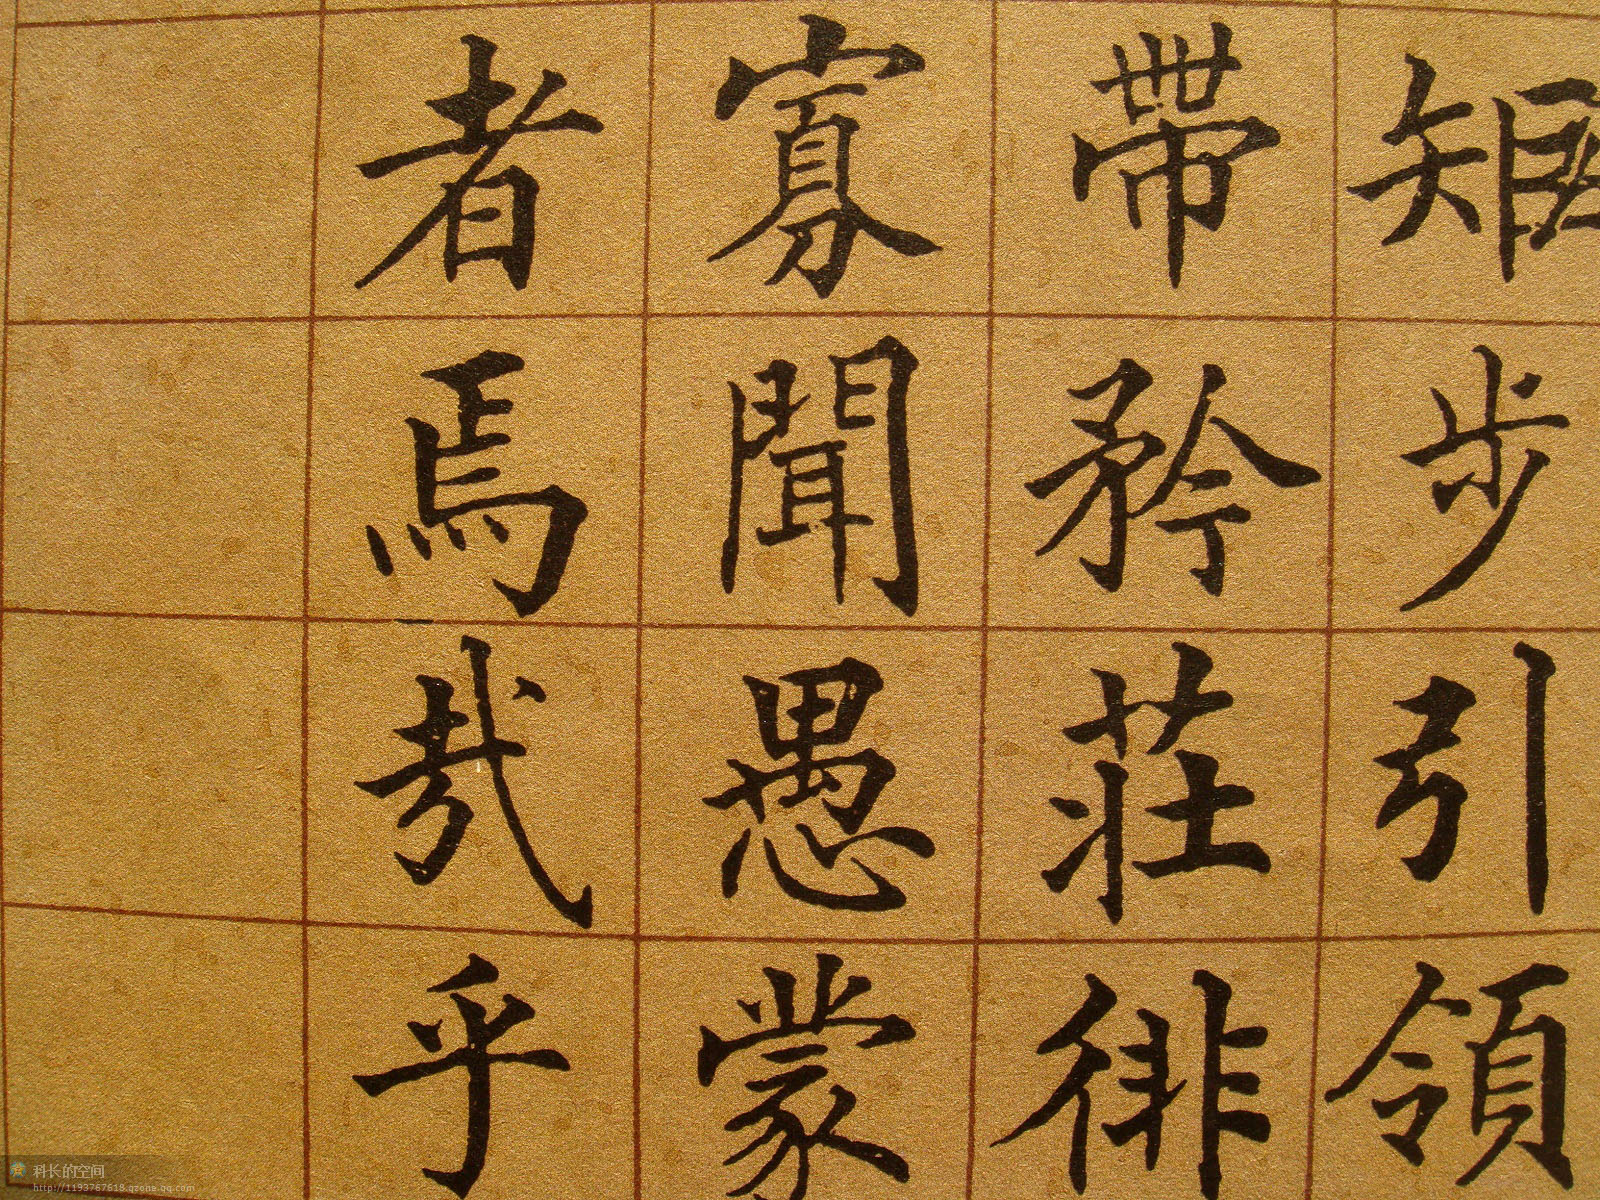 矩步引領
帶矜莊徘
寡聞愚蒙
者焉哉乎
科长的空间
http://1193767618.qzone.qq.com